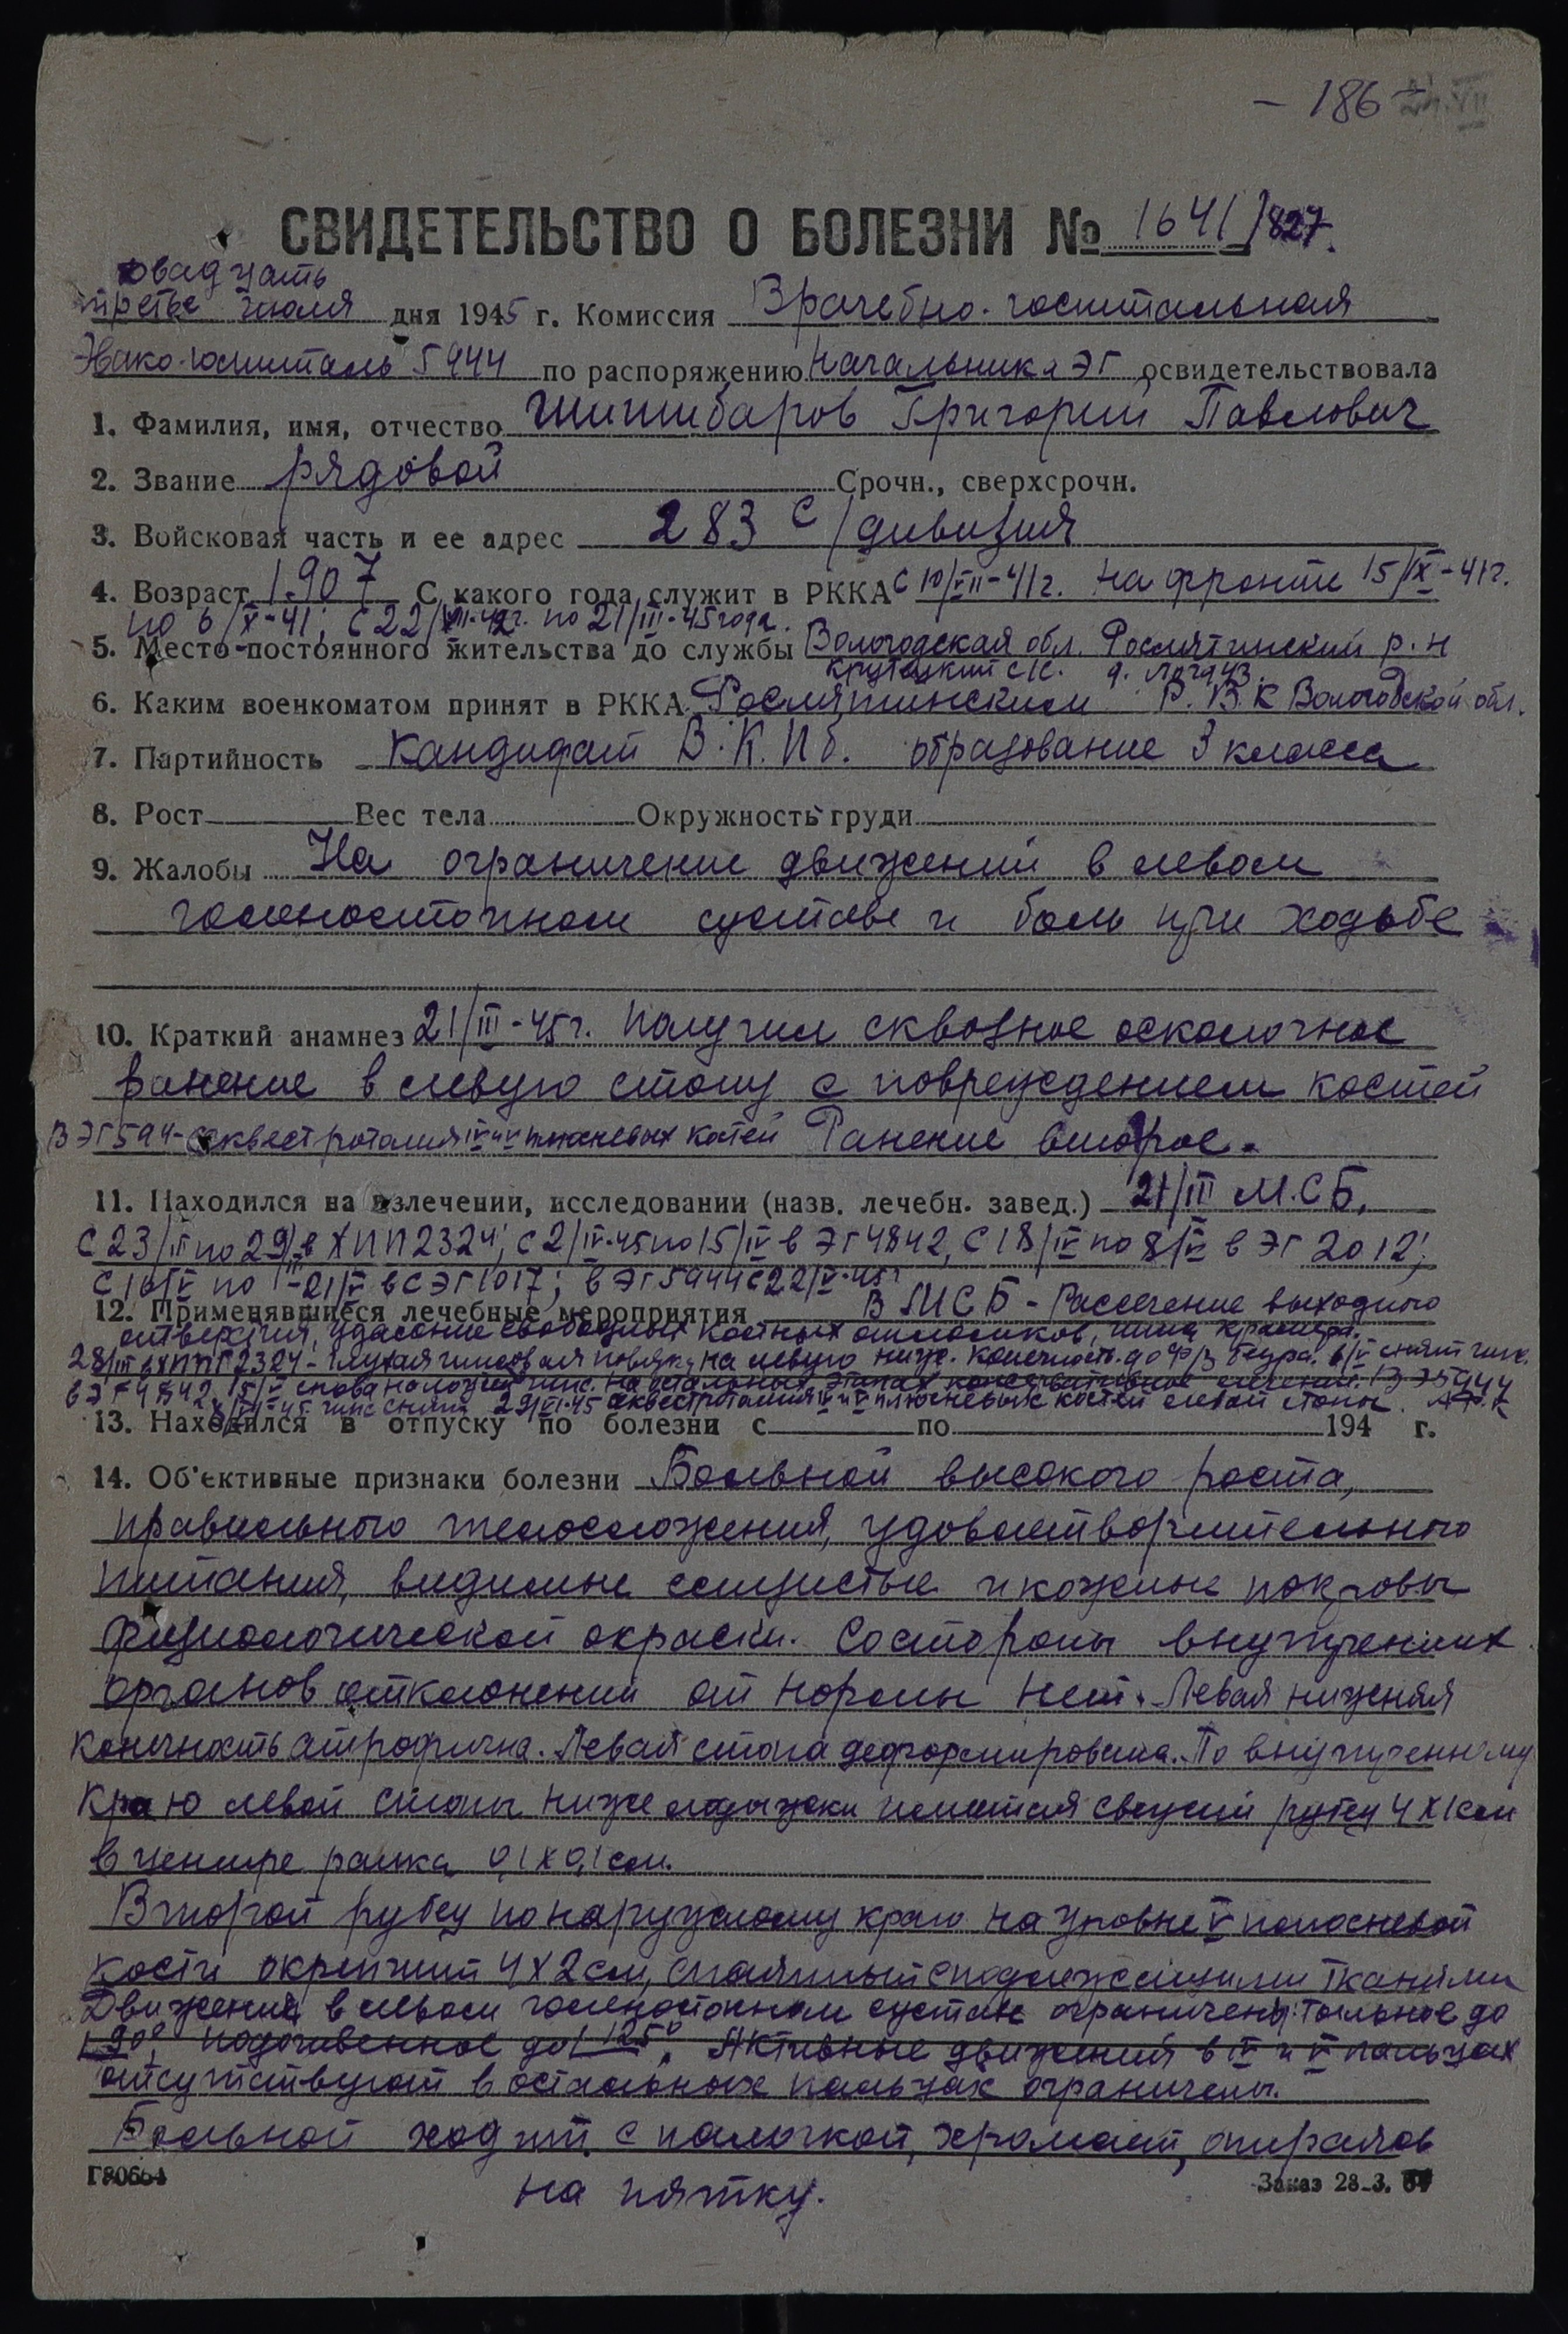 - 186 -
СВИДЕТЕЛЬСТВО О БОЛЕЗНИ № 1641/827.
двадцать
третье июля дня 1945 г. Комиссия Врачебно-госпитальная
Эвако-госпиталь 5944 по распоряжению Начальника ЭГ освидетельствовала
1. Фамилия, имя, отчество Шишебаров Григорий Павлович
2. Звание рядовой Срочн., сверхсрочн.
3. Войсковая часть и ее адрес 283 с/дивизия
4. Возраст 1907 С какого года служит в РККА с 10/VII-41г. на фронте 15/IX-41г.
по 6/X-41; с 22/VIII-42г. по 21/III-45года.
5. Место постоянного жительства до службы Вологодская обл. Рослятинский р-н
Крутецкий с/с. д.
6. Каким военкоматом принят в РККА Рослятинским Р.В.К Вологодской обл.
7. Партийность Кандидат В.К.П б. образование 3 класса
8. Рост Вес тела Окружность груди
9. Жалобы На ограничение движений в левом
голеностопном суставе и боль при ходьбе
10. Краткий анамнез 21/III-45г. получил сквозное осколочное
ранение в левую стопу с повреждением костей
В ЭГ 5944- секвестротомия IV и V плюсневых костей Ранение второе.
11. Находился на излечении, исследовании (назв. лечебн. завед.) 21/III М.С.Б.
С 23/III по 29/III в ХППГ 2324; с 2/IV-45 по 15/IV в ЭГ 4842, С 18/IV по 8/V в ЭГ 2012;
С 10/V по 21/V в СЭГ 1017; в ЭГ 5944 с 22/V-45г
12. Применявшиеся лечебные мероприятия В МСБ - Рассечение выходного
отверстия, удаление свободных костных отломков, шина Крамера.
28/III в ХППГ 2324 - Глухая гипсовая повязка на левую ниж. конечность до с/3 бедра. 6/V снят гипс.
в ЭГ 4842 15/V снова наложен гипс. На остальных этапах консервативное лечение. В ЭГ 5944
гипс снят 29/VI-45 секвестротомия IV и V плюсневых костей левой стопы.
13. Находился в отпуску по болезни с по 194 г.
14. Об'ективные признаки болезни Больной высокого роста,
правильного телосложения, удовлетворительного
питания, видимые слизистые и кожные покровы
физиологической окраски. Со стороны внутренних
органов отклонений от нормы нет. Левая нижняя
конечность атрофична. Левая стопа деформирована. По внутреннему
краю левой стопы ниже лодыжки имеется свежий рубец 4 х 1 см
в центре ранка 0,1 х 0,1 см.
Второй рубец по наружному краю на уровне V плюсневой
кости окрепший 4 х 2 см, спаянный с подлежащими тканями
Движения в левом голеностопном суставе ограничены: тыльное до
90°, подошвенное до 125°. Активные движения в IV и V пальцах
отсутствуют в остальных пальцах ограничены.
Больной ходит с палочкой, хромает, опираясь
на пятку.
Г80664 Заказ 28-3.